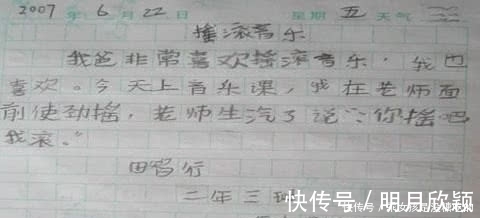 2007 年 6 月 22 日 星期 五 天气
摇滚音乐
我爸非常喜欢摇滚音乐，我也
喜欢。今天上音乐课，我在老师面
前使劲摇，老师生汽了说："你摇吧
我滚。"
田智行
二年三班
快传号 / 明月欣颖